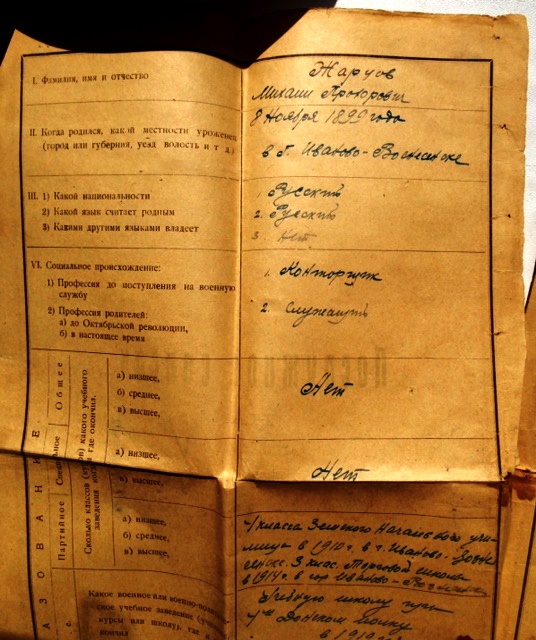 I. Фамилия, имя и отчество
Жаруов
Михаил Прохорович
II. Когда родился, какой местности уроженец
(город или губерния, уезд, волость и т. д.)
8 Ноября 1899 года
в г. Иваново-Вознесенске
III. 1) Какой национальности
1. Русский
2) Какой язык считает родным
2. Русский
3) Какими другими языками владеет
3. Нет
VI. Социальное происхождение:
1) Профессия до поступления на военную
службу
1. Конторщик
2) Профессия родителей:
а) до Октябрьской революции,
б) в настоящее время
2. Служащий
ОБРАЗОВАНИЕ
Сколько классов (курсов) какого учебного
заведения когда и где окончил.
Общее
а) низшее,
б) среднее,
в) высшее,
Нет
Специальное
а) низшее,
Нет
в) высшее,
Партийное
а) низшее,
б) среднее,
в) высшее,
класса Земского Начального учи-
лища в 1910 г. в г. Иваново-Возне-
сенске. 3 клас. Торговой школы
в 1914 г. в гор Иваново-Вознесенске
Какое военное или военно-
ское учебное заведение
курсы или школу), где
кончил
Учебную школу при
Донском полку
в